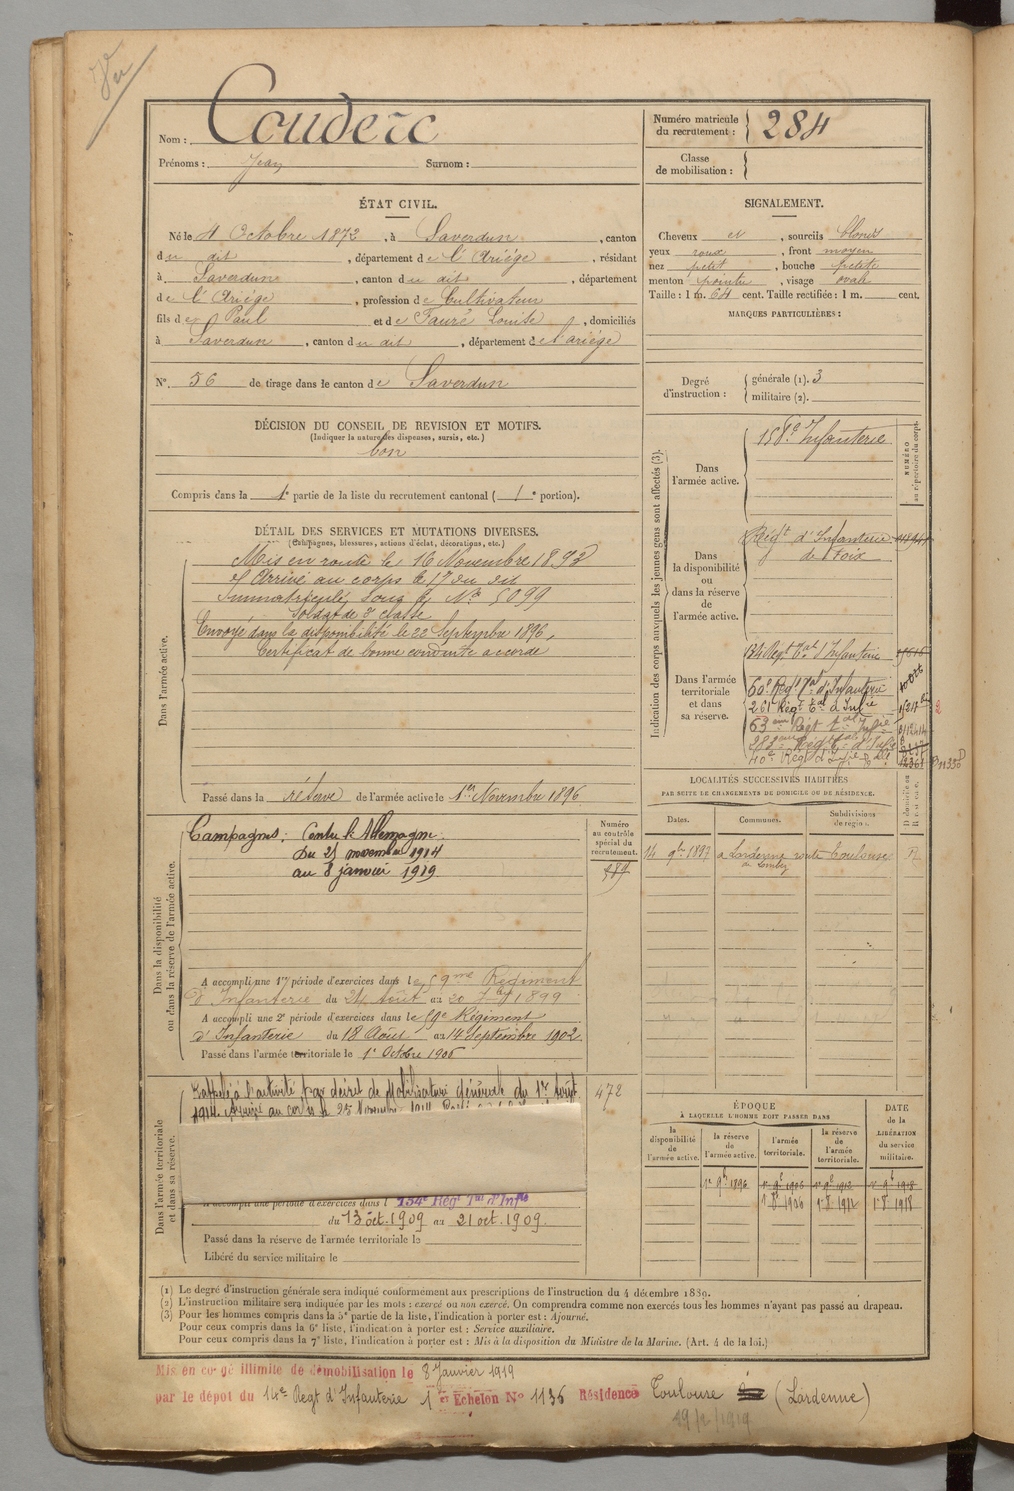 Vu
Nom : Couderc
Prénoms : Jean Surnom :
Numéro matricule du recrutement : 284
Classe de mobilisation :
ÉTAT CIVIL.
Né le 4 Octobre 1872, à Saverdun, canton
du dit, département de l'Ariège, résidant
à Saverdun, canton du dit, département
de l'Ariège, profession de Cultivateur
fils de Paul et de Fauré Louise, domiciliés
à Saverdun, canton du dit, département de l'ariège
N° 56 de tirage dans le canton de Saverdun
SIGNALEMENT.
Cheveux et, sourcils blonds
yeux roux, front moyen
nez petit, bouche petite
menton pointu, visage ovale
Taille : 1 m. 64 cent. Taille rectifiée : 1 m. cent.
MARQUES PARTICULIÈRES :
Degré d'instruction : générale (1). 3
militaire (2).
DÉCISION DU CONSEIL DE REVISION ET MOTIFS.
(Indiquer la nature des dispenses, sursis, etc.)
bon
Compris dans la 1e partie de la liste du recrutement cantonal (1e portion).
DÉTAIL DES SERVICES ET MUTATIONS DIVERSES.
(Campagnes, blessures, actions d'éclat, décorations, etc.)
Dans l'armée active.
Mis en route le 16 Novembre 1893
Arrivé au corps le 17 du dit
Immatriculé sous le N° 5099
Soldat de 2e classe
Envoyé dans la disponibilité le 22 Septembre 1896,
Certificat de bonne conduite accordé
Passé dans la réserve de l'armée active le 1er Novembre 1896
Indication des corps auxquels les jeunes gens sont affectés (3).
NUMÉRO au répertoire du corps.
Dans l'armée active.
158e Infanterie
Dans la disponibilité ou dans la réserve de l'armée active.
Régt d'Infanterie
de Foix
Dans l'armée territoriale et dans sa réserve.
134 Régt Tal d'Infanterie
60e Régt Tal d'Infanterie
261 Régt Tal d'Infie
63eme Régt tal Infie
282eme Régt tal d'Infie
40e Régt d'Infie Tale
LOCALITÉS SUCCESSIVES HABITÉES
PAR SUITE DE CHANGEMENTS DE DOMICILE OU DE RÉSIDENCE.
Dates. Communes. Subdivisions de région.
14 9bre 1897 à Lardenne route de Lombez Toulouse R
Dans la disponibilité ou dans la réserve de l'armée active.
Campagnes : Contre l'Allemagne
Du 25 novembre 1914
au 8 janvier 1919
Numéro au contrôle spécial du recrutement.
A accompli une 1re période d'exercices dans le 59me Régiment
d'Infanterie du 24 Août au 20 7bre 1899
A accompli une 2e période d'exercices dans le 59e Régiment
d'Infanterie du 18 Août au 14 Septembre 1902
Passé dans l'armée territoriale le 1er Octobre 1906
Dans l'armée territoriale et dans sa réserve.
Rappelé à l'activité par décret de Mobilisation Générale du 1er Août
1914. Arrivé au corps le 25 Novembre 1914
472
A accompli une période d'exercices dans l 134e Régt Tal d'Infie
du 13 oct. 1909 au 21 oct. 1909.
Passé dans la réserve de l'armée territoriale le
Libéré du service militaire le
ÉPOQUE
À LAQUELLE L'HOMME DOIT PASSER DANS
la disponibilité de l'armée active. la réserve de l'armée active. l'armée territoriale. la réserve de l'armée territoriale.
DATE de la LIBÉRATION du service militaire.
1er 9e 1896 1er 9e 1906 1er 9e 1912 1er 9e 1918
1.8 1906 1.8 1912 1.8 1918
(1) Le degré d'instruction générale sera indiqué conformément aux prescriptions de l'instruction du 4 décembre 1889.
(2) L'instruction militaire sera indiquée par les mots : exercé ou non exercé. On comprendra comme non exercés tous les hommes n'ayant pas passé au drapeau.
(3) Pour les hommes compris dans la 5e partie de la liste, l'indication à porter est : Ajourné.
Pour ceux compris dans la 6e liste, l'indication à porter est : Service auxiliaire.
Pour ceux compris dans la 7e liste, l'indication à porter est : Mis à la disposition du Ministre de la Marine. (Art. 4 de la loi.)
Mis en congé illimité de démobilisation le 8 Janvier 1919
par le dépôt du 14e Régt d'Infanterie 1er Echelon N° 1136 Résidence Toulouse (Lardenne)
19/2/1919